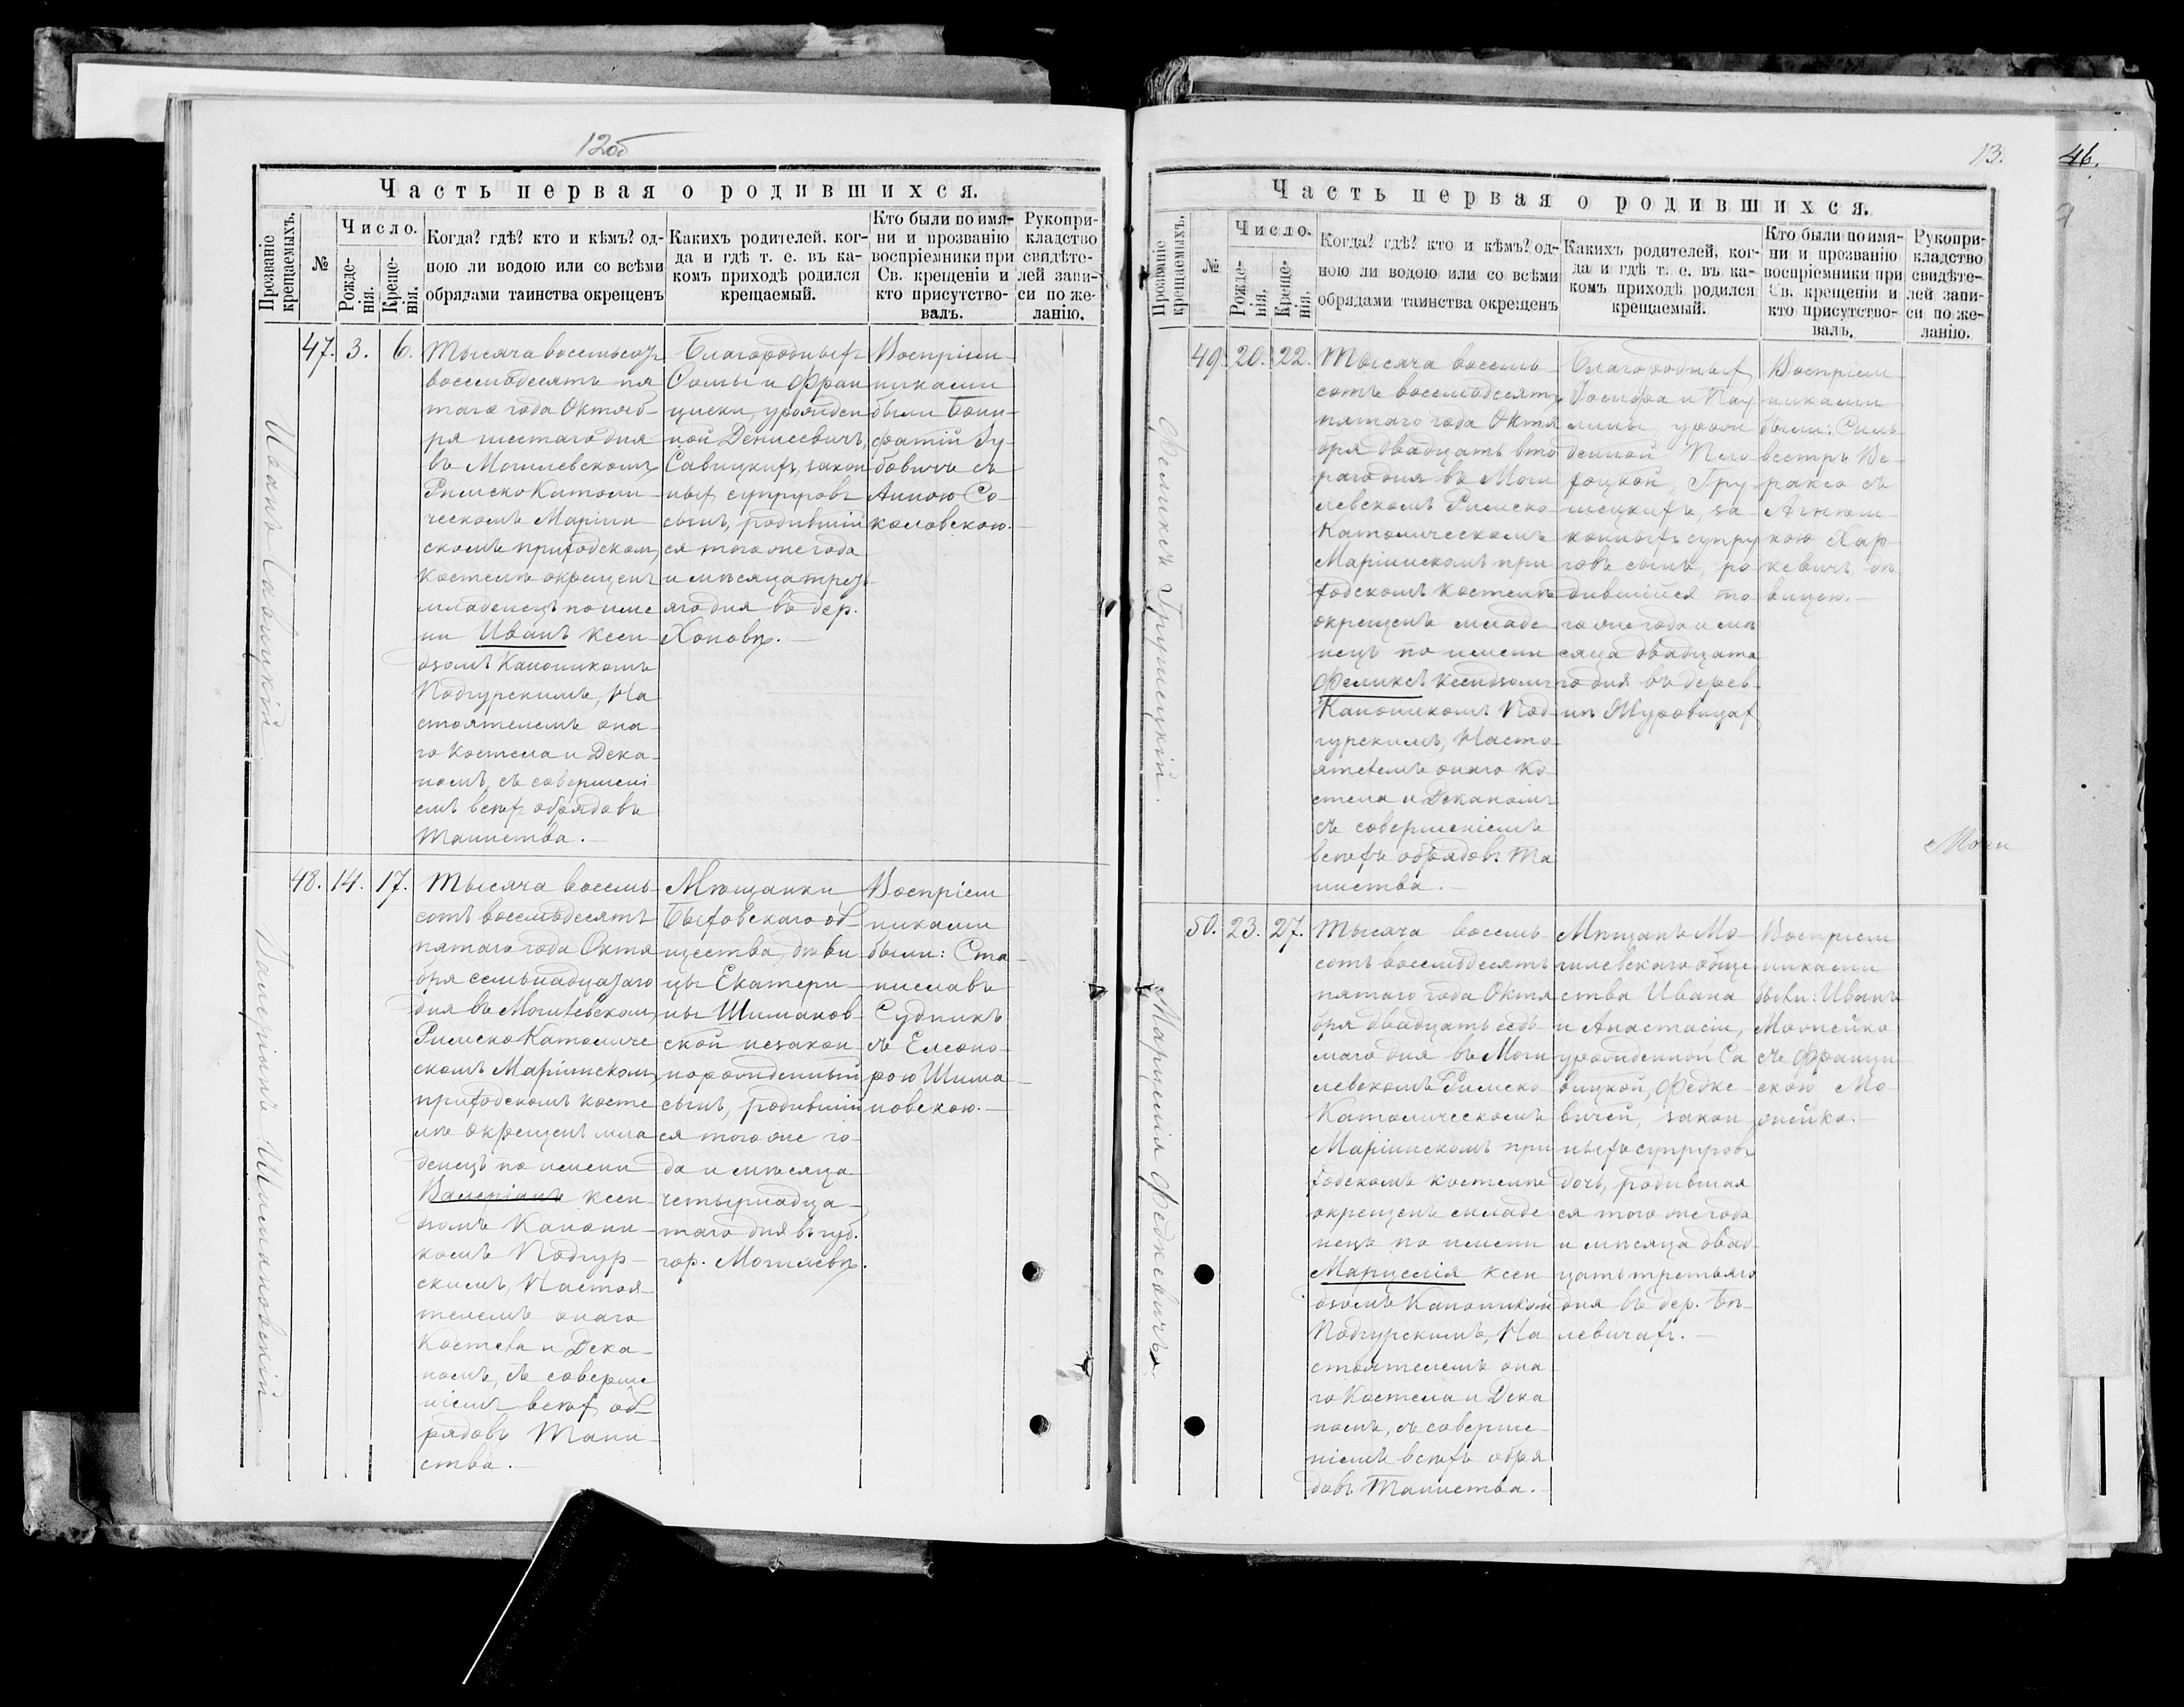 12об
Часть первая о родившихся.
Прозваніе крещаемыхъ.
№
Число.
Рожденія.
Крещенія.
Когда? гдѣ? кто и кѣмъ? од-
ною ли водою или со всѣми
обрядами таинства окрещенъ
Какихъ родителей, ког-
да и гдѣ т. е. въ ка-
комъ приходѣ родился
крещаемый.
Кто были по имя-
ни и прозванію
воспріемники при
Св. крещеніи и
кто присутство-
валъ.
Рукопри-
кладство
свидѣте-
лей запи-
си по же-
ланію.
Иванъ Савицкій.
47. 3. 6.
Тысяча восемьсотъ
восемьдесятъ пя
таго года Октяб-
ря шестаго дня
въ Могилевскомъ
Римско Католи-
ческомъ Маріин-
скомъ приходском
костелѣ окрещенъ
младенецъ по име
ни Иванъ ксен-
дзомъ Каноникомъ
Подгурскимъ, На
стоятелемъ она-
го Костела и Дека-
номъ, съ совершені
емъ всѣхъ обрядовъ
Таинства.
Благородныхъ
Сомы и Фран
циски, урожден
ной Денисевичъ,
Савицкихъ, закон
ныхъ супруговъ
сынъ, родившій
ся того же года
и мѣсяца треть
яго дня въ дер.
Хоновѣ.
Воспріем-
никами
были Бони-
фатій Гу-
бовичъ съ
Анною Со-
коловскою.
Валеріанъ Шимановскій.
48. 14. 17.
Тысяча восемь-
сотъ восемьдесятъ
пятаго года Октя
бря семьнадцатаго
дня въ Могилевском
Римско Католиче
скомъ Маріинском
приходскомъ косте
лѣ окрещенъ мла
денецъ по имени
Валеріанъ ксен-
дзомъ Канони-
комъ Подгур-
скимъ, Настоя-
телемъ онаго
Костела и Дека-
номъ, съ соверше
ніемъ всѣхъ об-
рядовъ Таин-
ства.
Мѣщанки
Быховскаго об-
щества, дѣви
цы Екатери-
ны Шиманов-
ской незакон-
норожденный
сынъ, родивший
ся того же го-
да и мѣсяца
четырнадца-
таго дня въ губ.
гор. Могилевѣ.
Воспріем
никами
были: Ста-
ниславъ
Судникъ
съ Елеоно-
рою Шима-
новскою.
13.
46.
Часть первая о родившихся.
Прозваніе крещаемыхъ.
№
Число.
Рожденія.
Крещенія.
Когда? гдѣ? кто и кѣмъ? од-
ною ли водою или со всѣми
обрядами таинства окрещенъ
Какихъ родителей, ког-
да и гдѣ т. е. въ ка-
комъ приходѣ родился
крещаемый.
Кто были по имя-
ни и прозванію
воспріемники при
Св. крещеніи и
кто присутство-
валъ.
Рукопри-
кладство
свидѣте-
лей запи-
си по же-
ланію.
Феликсъ Грушецкій.
49. 20. 22.
Тысяча восемь-
сотъ восемьдесятъ
пятаго года Октя
бря двадцать вто
раго дня въ Моги
левскомъ Римско-
Католическомъ
Маріинскомъ при
ходскомъ костелѣ
окрещенъ младе
нецъ по имени
Феликсъ ксендзомъ
Каноникомъ Под-
гурскимъ, Насто-
ятелемъ онаго Ко
стела и Деканомъ
съ совершеніемъ
всѣхъ обрядовъ Та
инства.
Благородныхъ
Іосифа и Пау
лины, урож
денной
Гру-
шецкихъ, за-
конныхъ супру
говъ сынъ, ро
дившійся то
го же года и мѣ
сяца двадцата
го дня въ дерев-
нѣ Журовицах
Воспріем
никами
были: Силь-
вестръ Ве-
ракса съ
Агнѣш-
кою Хар-
кевичъ, дѣ
вицею.
Моги
Марцелія Федкевичъ.
50. 23. 27.
Тысяча восемь-
сотъ восемьдесятъ
пятаго года Октя
бря двадцать седь-
маго дня въ Моги
левскомъ Римско-
Католическомъ
Маріинскомъ при
ходскомъ костелѣ
окрещенъ младе
нецъ по имени
Марцелія ксен-
дзомъ Каноником
Подгурскимъ, На
стоятелемъ она-
го Костела и Дека
номъ, съ соверше-
ніемъ всѣхъ обря
довъ Таинства.
Мѣщанъ Мо-
гилевскаго обще
ства Ивана
и Анастасіи,
урожденной Са
вицкой, Федке-
вичей, закон
ныхъ супруговъ
дочь, родившая
ся того же года
и мѣсяца двад-
цать третьяго
дня въ дер. Бѣ-
левичахъ.
Воспріем
никами
были: Иванъ
Можейко
съ Франци-
скою Мо-
жейко.